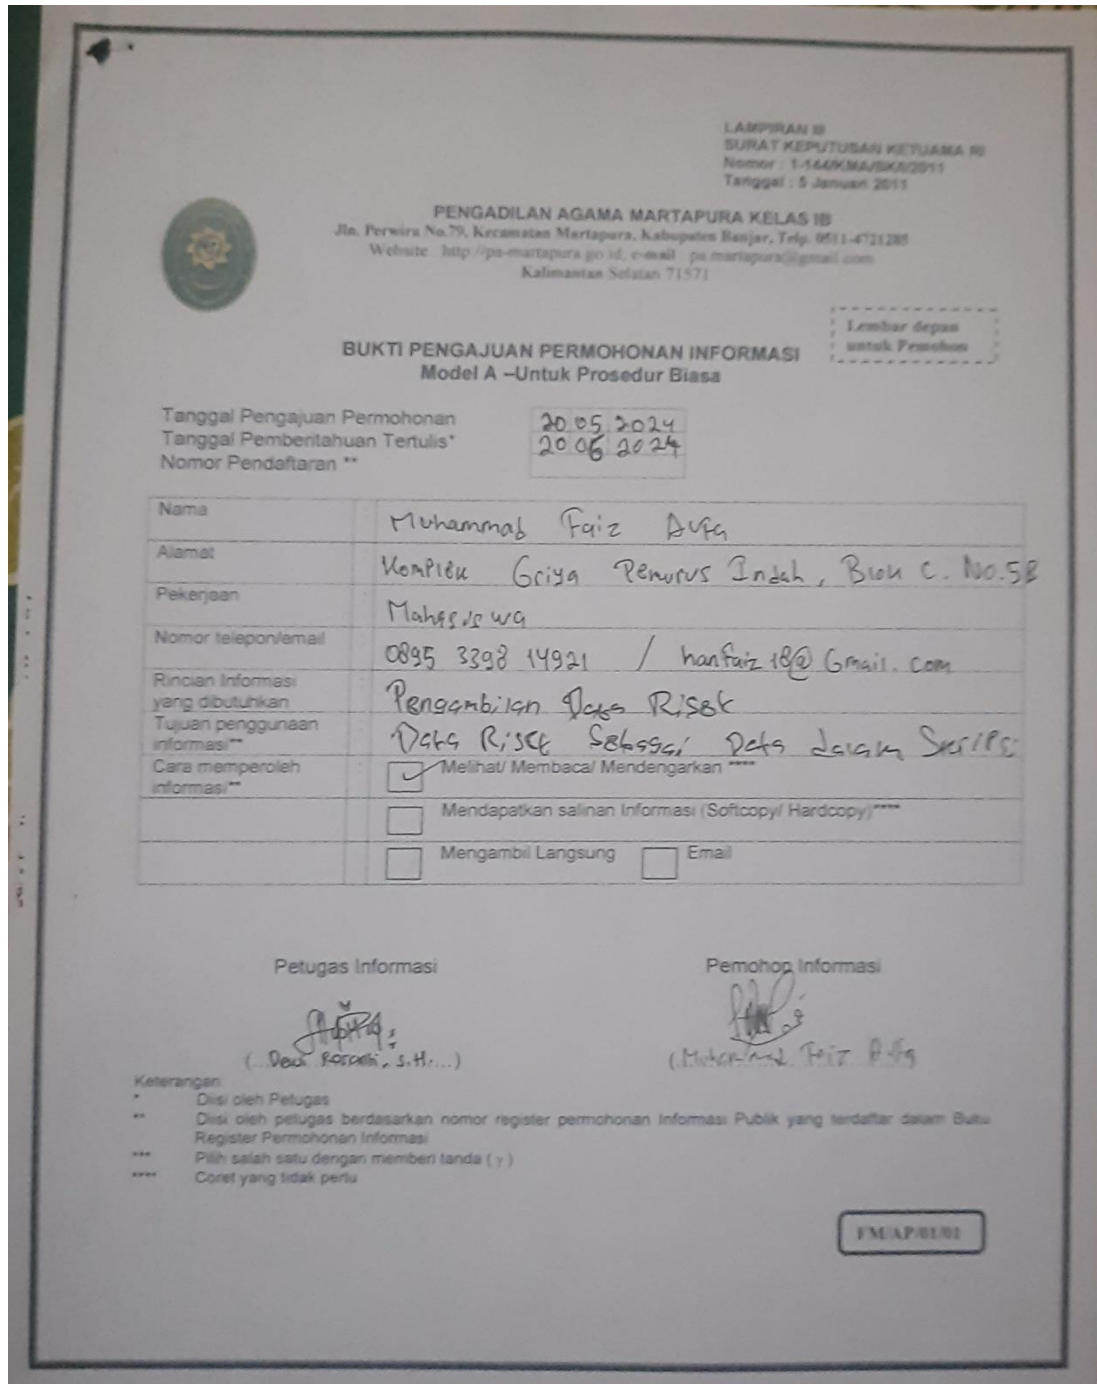 LAMPIRAN III
SURAT KEPUTUSAN KETUAMA RI
Nomor : 1-144/KMA/SK/I/2011
Tanggal : 5 Januari 2011
PENGADILAN AGAMA MARTAPURA KELAS IB
Jln. Perwira No.79, Kecamatan Martapura, Kabupaten Banjar, Telp. 0511-4721285
Website http://pa-martapura.go.id, e-mail pa.martapura@gmail.com
Kalimantan Selatan 71571
Lembar depan
untuk Pemohon
BUKTI PENGAJUAN PERMOHONAN INFORMASI
Model A –Untuk Prosedur Biasa
Tanggal Pengajuan Permohonan 20 05 2024
Tanggal Pemberitahuan Tertulis* 20 06 2024
Nomor Pendaftaran **
Nama : Muhammad Faiz
Alamat : Komplek Griya Pemurus Indah, Blok C. No.5B
Pekerjaan : Mahasiswa
Nomor telepon/email : 0895 3398 14921 / hanfaiz18@Gmail.com
Rincian Informasi
yang dibutuhkan : Pengambilan Data Riset
Tujuan penggunaan
informasi** : Data Riset Sebagai Data dalam Skripsi
Cara memperoleh
informasi** : Melihat/ Membaca/ Mendengarkan ****
Mendapatkan salinan Informasi (Softcopy/ Hardcopy)****
Mengambil Langsung Email
Petugas Informasi Pemohon Informasi
(.. Dewi S.H....) (Muhammad Faiz
Keterangan
* Diisi oleh Petugas
** Diisi oleh petugas berdasarkan nomor register permohonan Informasi Publik yang terdaftar dalam Buku
Register Permohonan Informasi
*** Pilih salah satu dengan memberi tanda ( γ )
**** Coret yang tidak perlu
FM/AP/01/01